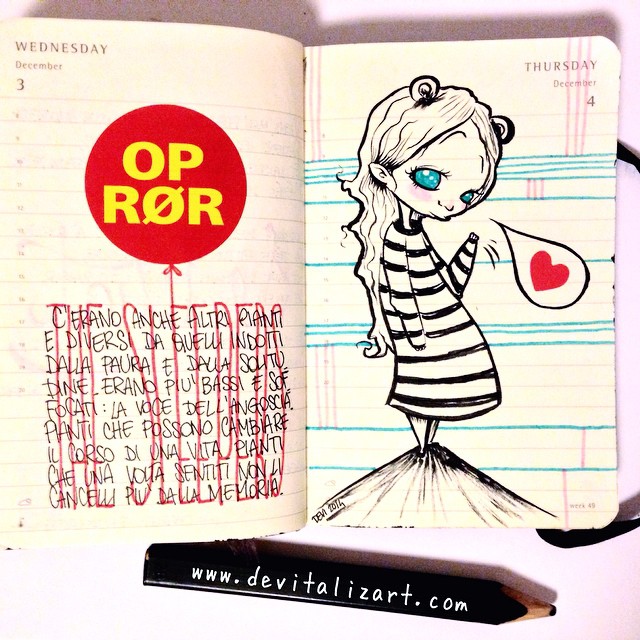 WEDNESDAY
December
3
OP
RØR
C'ERANO ANCHE ALTRI PIANTI
E DIVERSI DA QUELLI INDOTTI
DALLA PAURA E DALLA SOLITU
DINE ERANO PIU' BASSI E SOF
FOCATI: LA VOCE DELL'ANGOSCIA.
PIANTI CHE POSSONO CAMBIARE
IL CORSO DI UNA VITA, PIANTI
CHE UNA VOLTA SENTITI NON LI
CANCELLI PIU' DALLA MEMORIA.
THURSDAY
December
4
DEVI 2014
week 49
www.devitalizart.com